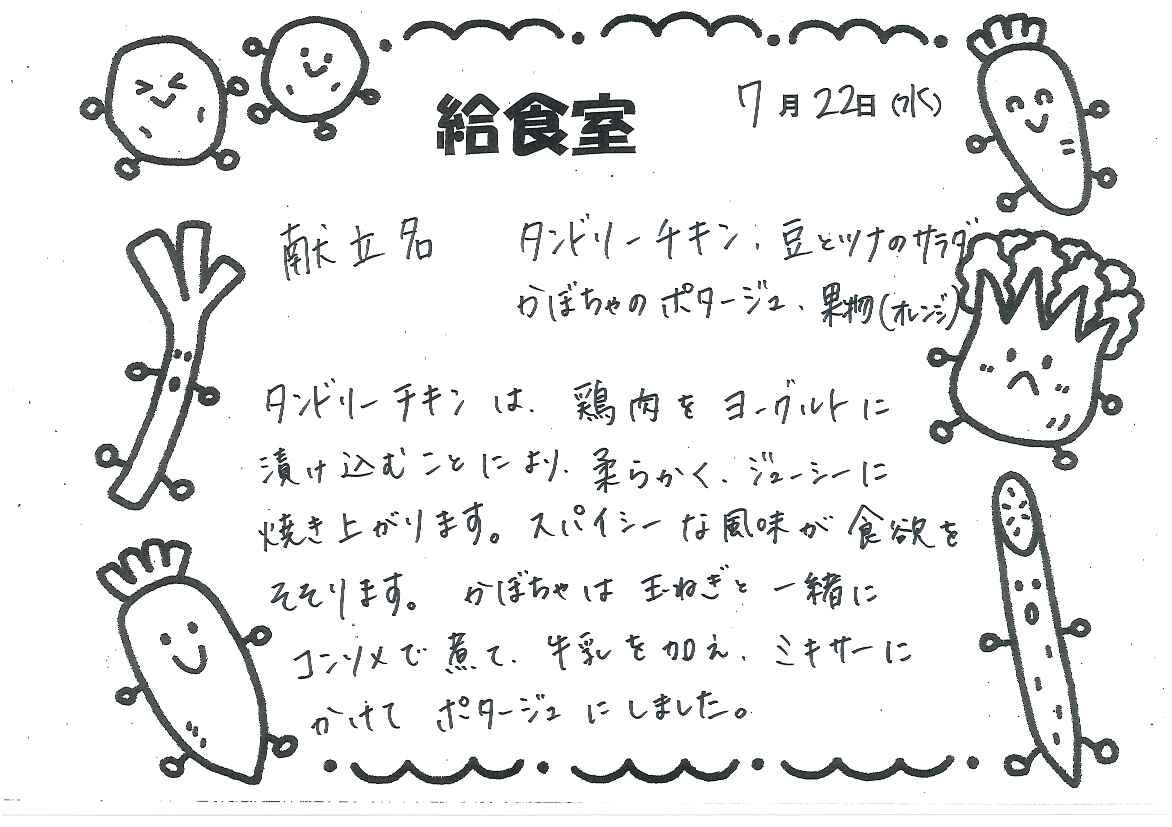 給食室
7月22日(水)
献立名 タンドリーチキン、豆とツナのサラダ
かぼちゃのポタージュ、果物(オレンジ)
タンドリーチキンは、鶏肉をヨーグルトに
漬け込むことにより、柔らかく、ジューシーに
焼き上がります。スパイシーな風味が食欲を
そそります。かぼちゃは玉ねぎと一緒に
コンソメで煮て、牛乳を加え、ミキサーに
かけてポタージュにしました。